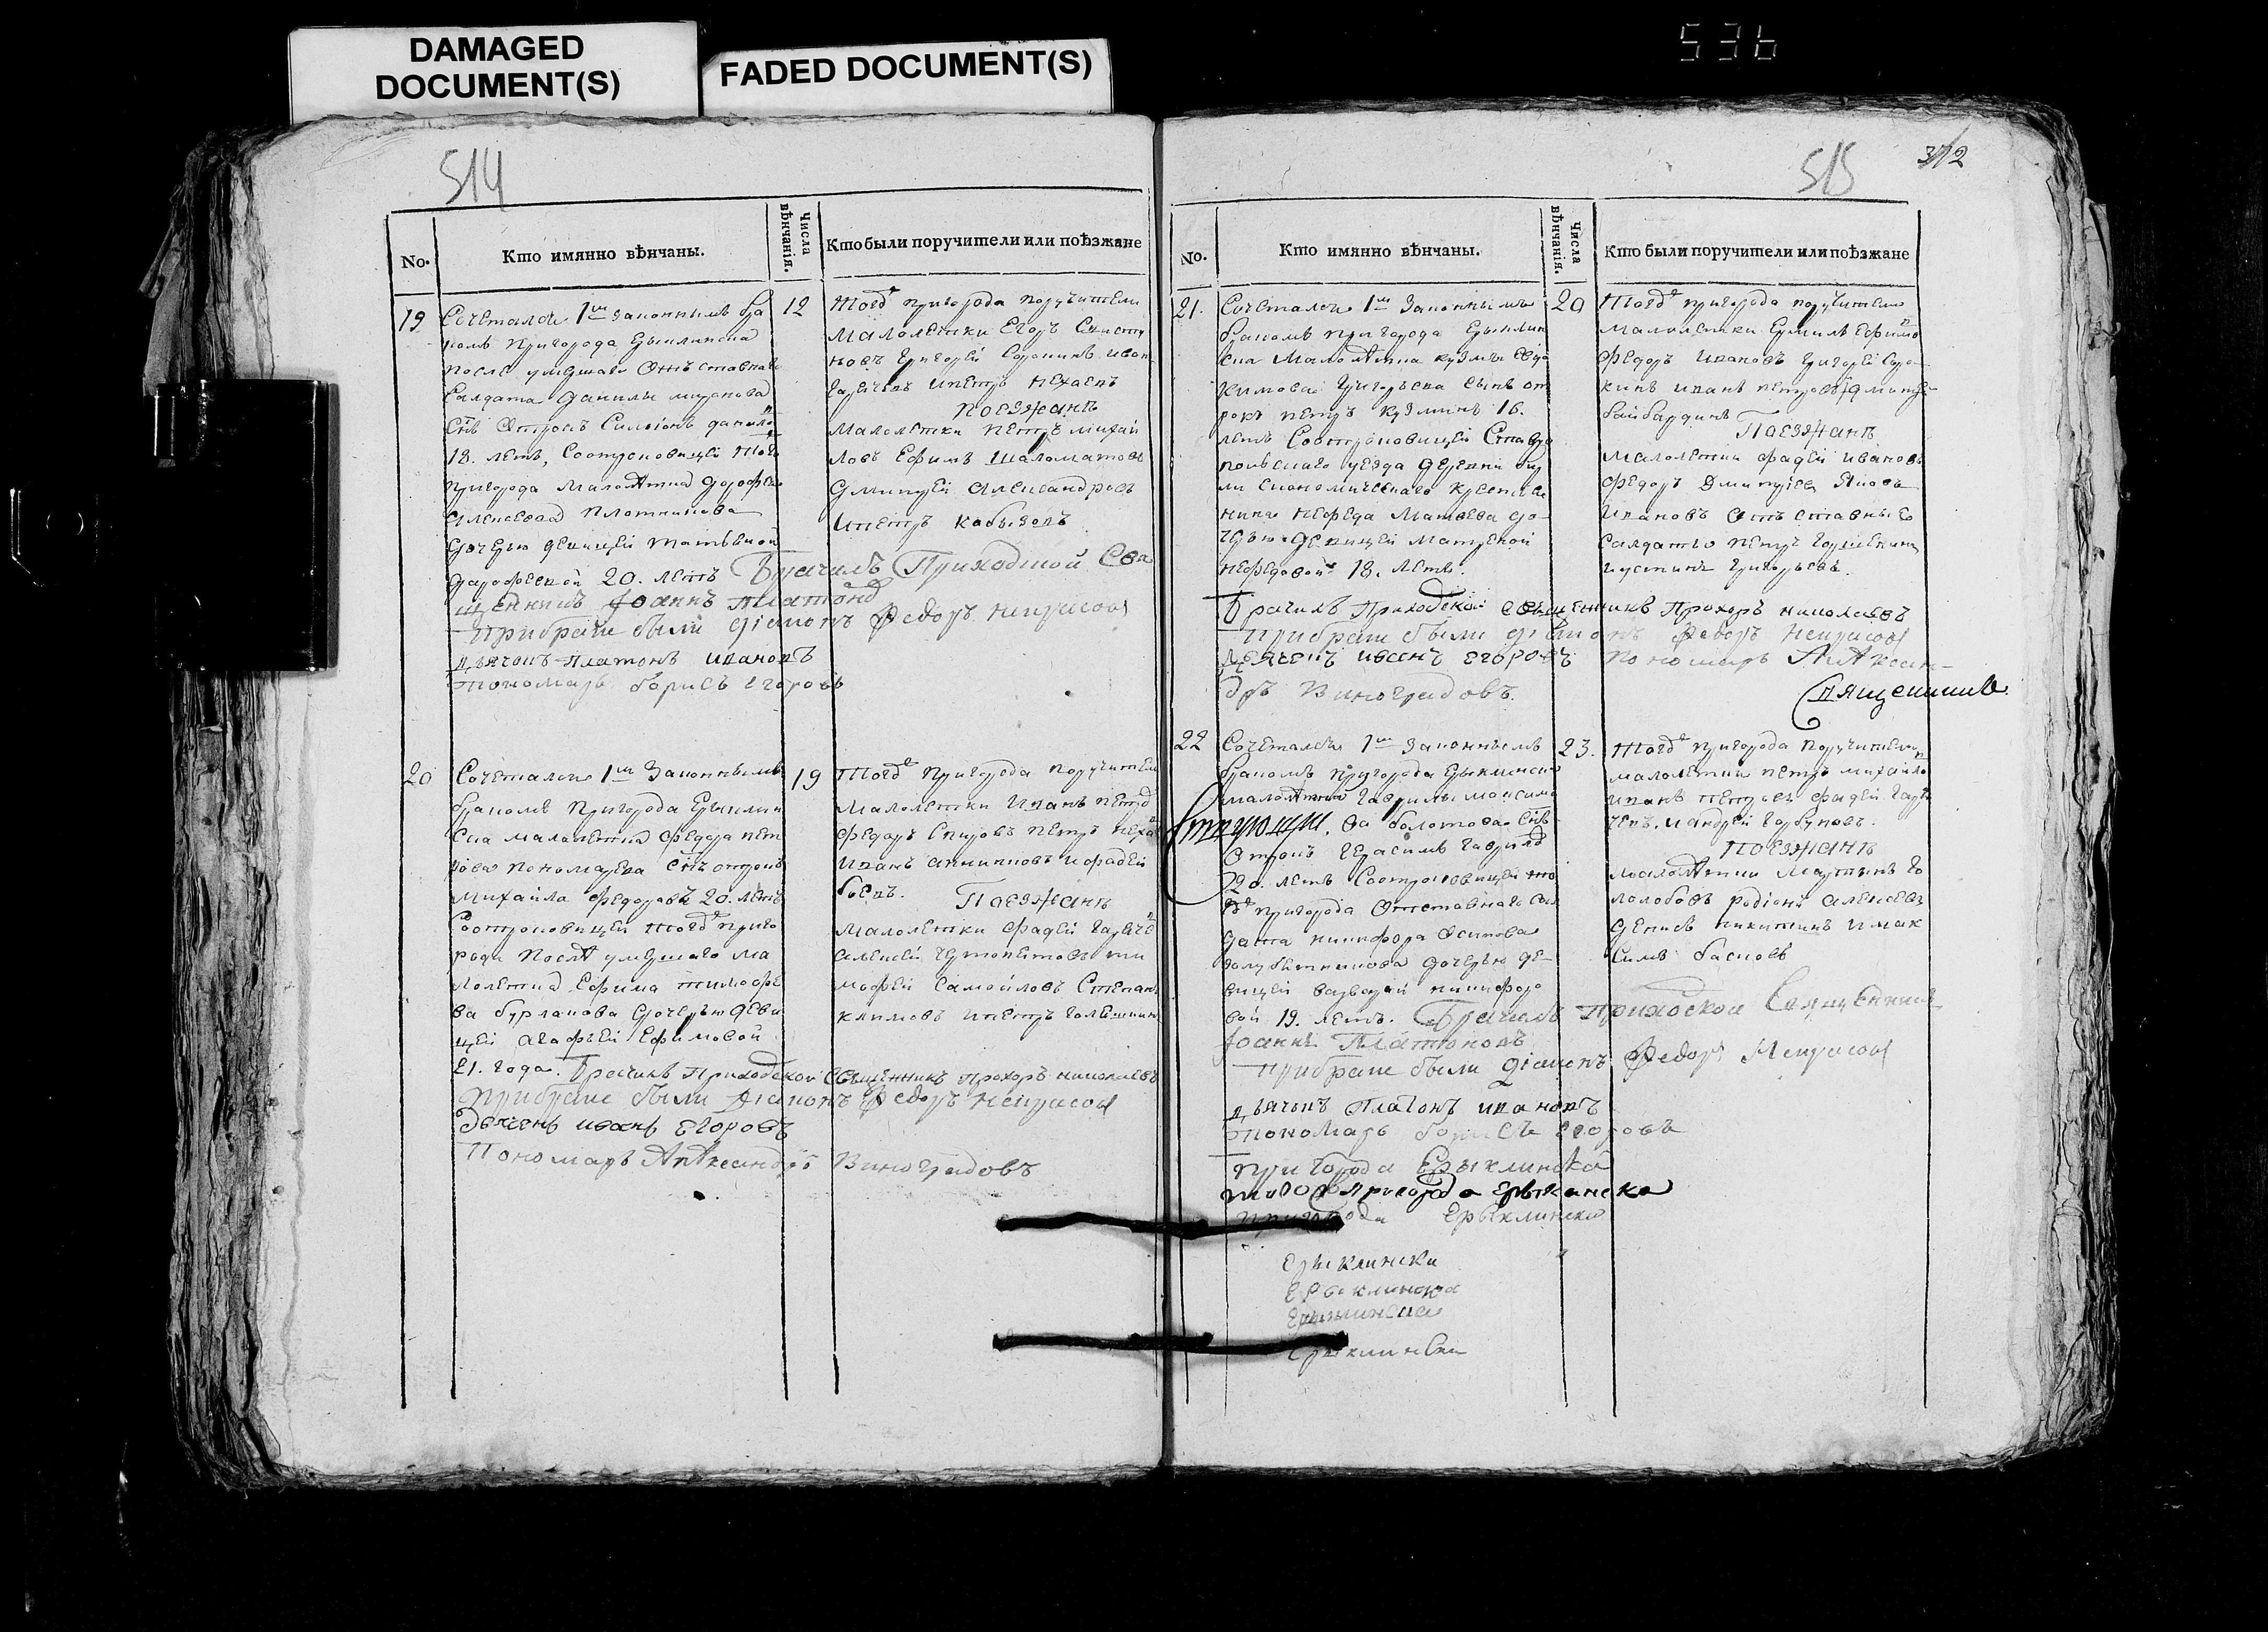 DAMAGED
DOCUMENT(S)
FADED DOCUMENT(S)
536
514
No.
Кто имянно вѣнчаны.
Числа вѣнчанія.
Кто были поручители или поѣзжане
19
Сочетался 1м законнымъ бра
комъ пригорода Ерыклинска
после умершаго отставнаго
Солдата Данилы
Снъ отрокъ Симионъ данило
18. летъ, Соотроковицей тогѡ
пригорода малолѣтка дорофея
алексеева плотникова
дочерью девицей татьяной
дорофеевой 20. летъ Брачилъ Приходской Свя
щенникъ Іоаннъ Платонов
При браке были діаконъ Федоръ Некрасовъ
дьячокъ Платонъ ивановъ
Пономарь борисъ егоровъ
12
тогож пригорода поручители
малолетки Егоръ
новъ григорей Сорокинъ иван
ипетръ нехаевъ
Поезжанѣ
малолетки петръ михай
ловъ Ефимъ шаломатовъ
дмитрей александровъ
ипетръ кобызовъ
20
Сочетался 1м законнымъ
бракомъ пригорода Ерыклин
ска малолетка федора пет
рова пономарева Снъ отрокъ
михайла федоровъ 20. летъ
Соотроковицей тогож приго
рода послѣ умершаго ма
лолетка Ефима тимофѣ
ва бурлакова дочерью деви
цей агафьей Ефимовой
21. года. Брачилъ Приходской Священникъ Прохоръ николаевъ
При браке были діаконъ Федоръ Некрасовъ
Дьячекъ иванъ Егоровъ
Пономарь Александръ Виноградовъ
19
тогож пригорода поручители
малолетки иванъ петров
федоръ Спировъ петръ неха
иванъ аникиновъ ифадей
боевъ. Поезжанѣ
малолетки фадей
алексей ти
мофей Самойловъ Степанъ
климовъ ипетръ
515
372
No.
Кто имянно вѣнчаны.
Числа вѣнчанія.
Кто были поручители или поѣзжане
21.
Сочетался 1м законнымъ
бракомъ пригорода Ерыклин
ска малолѣтка кузмы евдо
кимова григорьева сынъ от
рокъ петръ кузминъ 16.
летъ Соотроковицей Ставро
польскаго уезда деревни
ли економическаго крестья
нина нефеда матвева до
черью девицей матреной
нефедовой 18. летъ.
Брачилъ Приходской священникъ Прохоръ николаевъ
При браке были діаконъ Федоръ Некрасовъ
Дьячекъ иванъ Егоровъ Пономарь Алѣксан
дръ Виноградовъ.
20
тогож пригорода поручители
малолетки Ермилъ Ефимо
федоръ ивановъ григорей Соро
кинъ иванъ петровъ дмитре
байбардинъ
Поезжанѣ
малолетки фадей ивановъ
федоръ Дмитриев Яковъ
ивановъ отъставные
салдаты петръ
иустинъ григорьевъ.
Священникъ
22
Сочетался 1м законнымъ
бракомъ пригорода Ерыклинска
малолѣтка гаврилы максимо
ва болотова Снъ
отрокъ герасимъ гаврилов
20. летъ Соотроковицей то
гож пригорода отставнаго сол
дата никифора осипова
голубятникова дочерью де
вицей варварой никифоро
вой 19. летъ. Брачилъ Приходской Священникъ
Іоаннъ Платоновъ
При браке были діаконъ Федоръ Некрасовъ
дьячокъ Платонъ ивановъ
Пономарь борисъ егоровъ
23.
тогож пригорода поручители
малолетки петръ михайло
иванъ петровъ фадей
иандрей горбуновъ.
Поезжанѣ
малолѣтки мартынъ го
лолобовъ родіонъ алексеевъ
денисъ никитинъ имак
симъ басковъ
пригорода Ерыклинска
пригорода ерыклинска
пригорода Ерыклинска
Ерыклинска
Ерыклинска
Ерыклинска
Ерыклинска